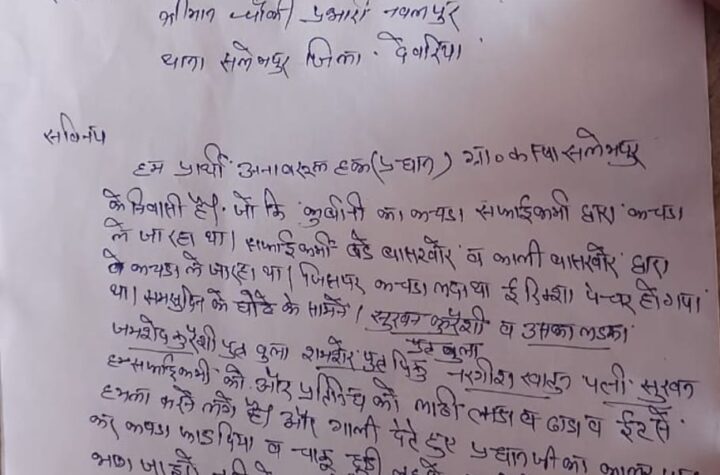 श्रीमान चौकी प्रभारी नवलपुर
थाना सलेमपुर जिला. देवरिया
सविनय
हम प्रार्थी अनावरूल हक (प्रधान) ग्रा० कस्पा सलेमपुर
के निवासी है। जो कि कुर्बानी का कचडा सफाईकर्मी द्वारा कचडा
ले जा रहा था। सफाईकर्मी बेडे बासखोर व काली बासखोर द्वारा
कचडा ले जा रहा था। जिसपर कचडा लदा था ई रिक्शा पंचर हो गया
था। समसुदिन के घोठे के सामने। सुखन कुरैशी व उसका लडका
जमशेद कुरैशी पुत्र बुला शमशेर पुत्र पिंकु नरगीश खातुन पत्नी सुखन
पुत्र बुला
हम सफाईकर्मी को और प्रतिनिध को लाठी व डंडा व ईट से
हमला करने लगे है। और गाली देते हुए प्रधान जी का
कर कपडा फाड दिया व चाकू छूडी